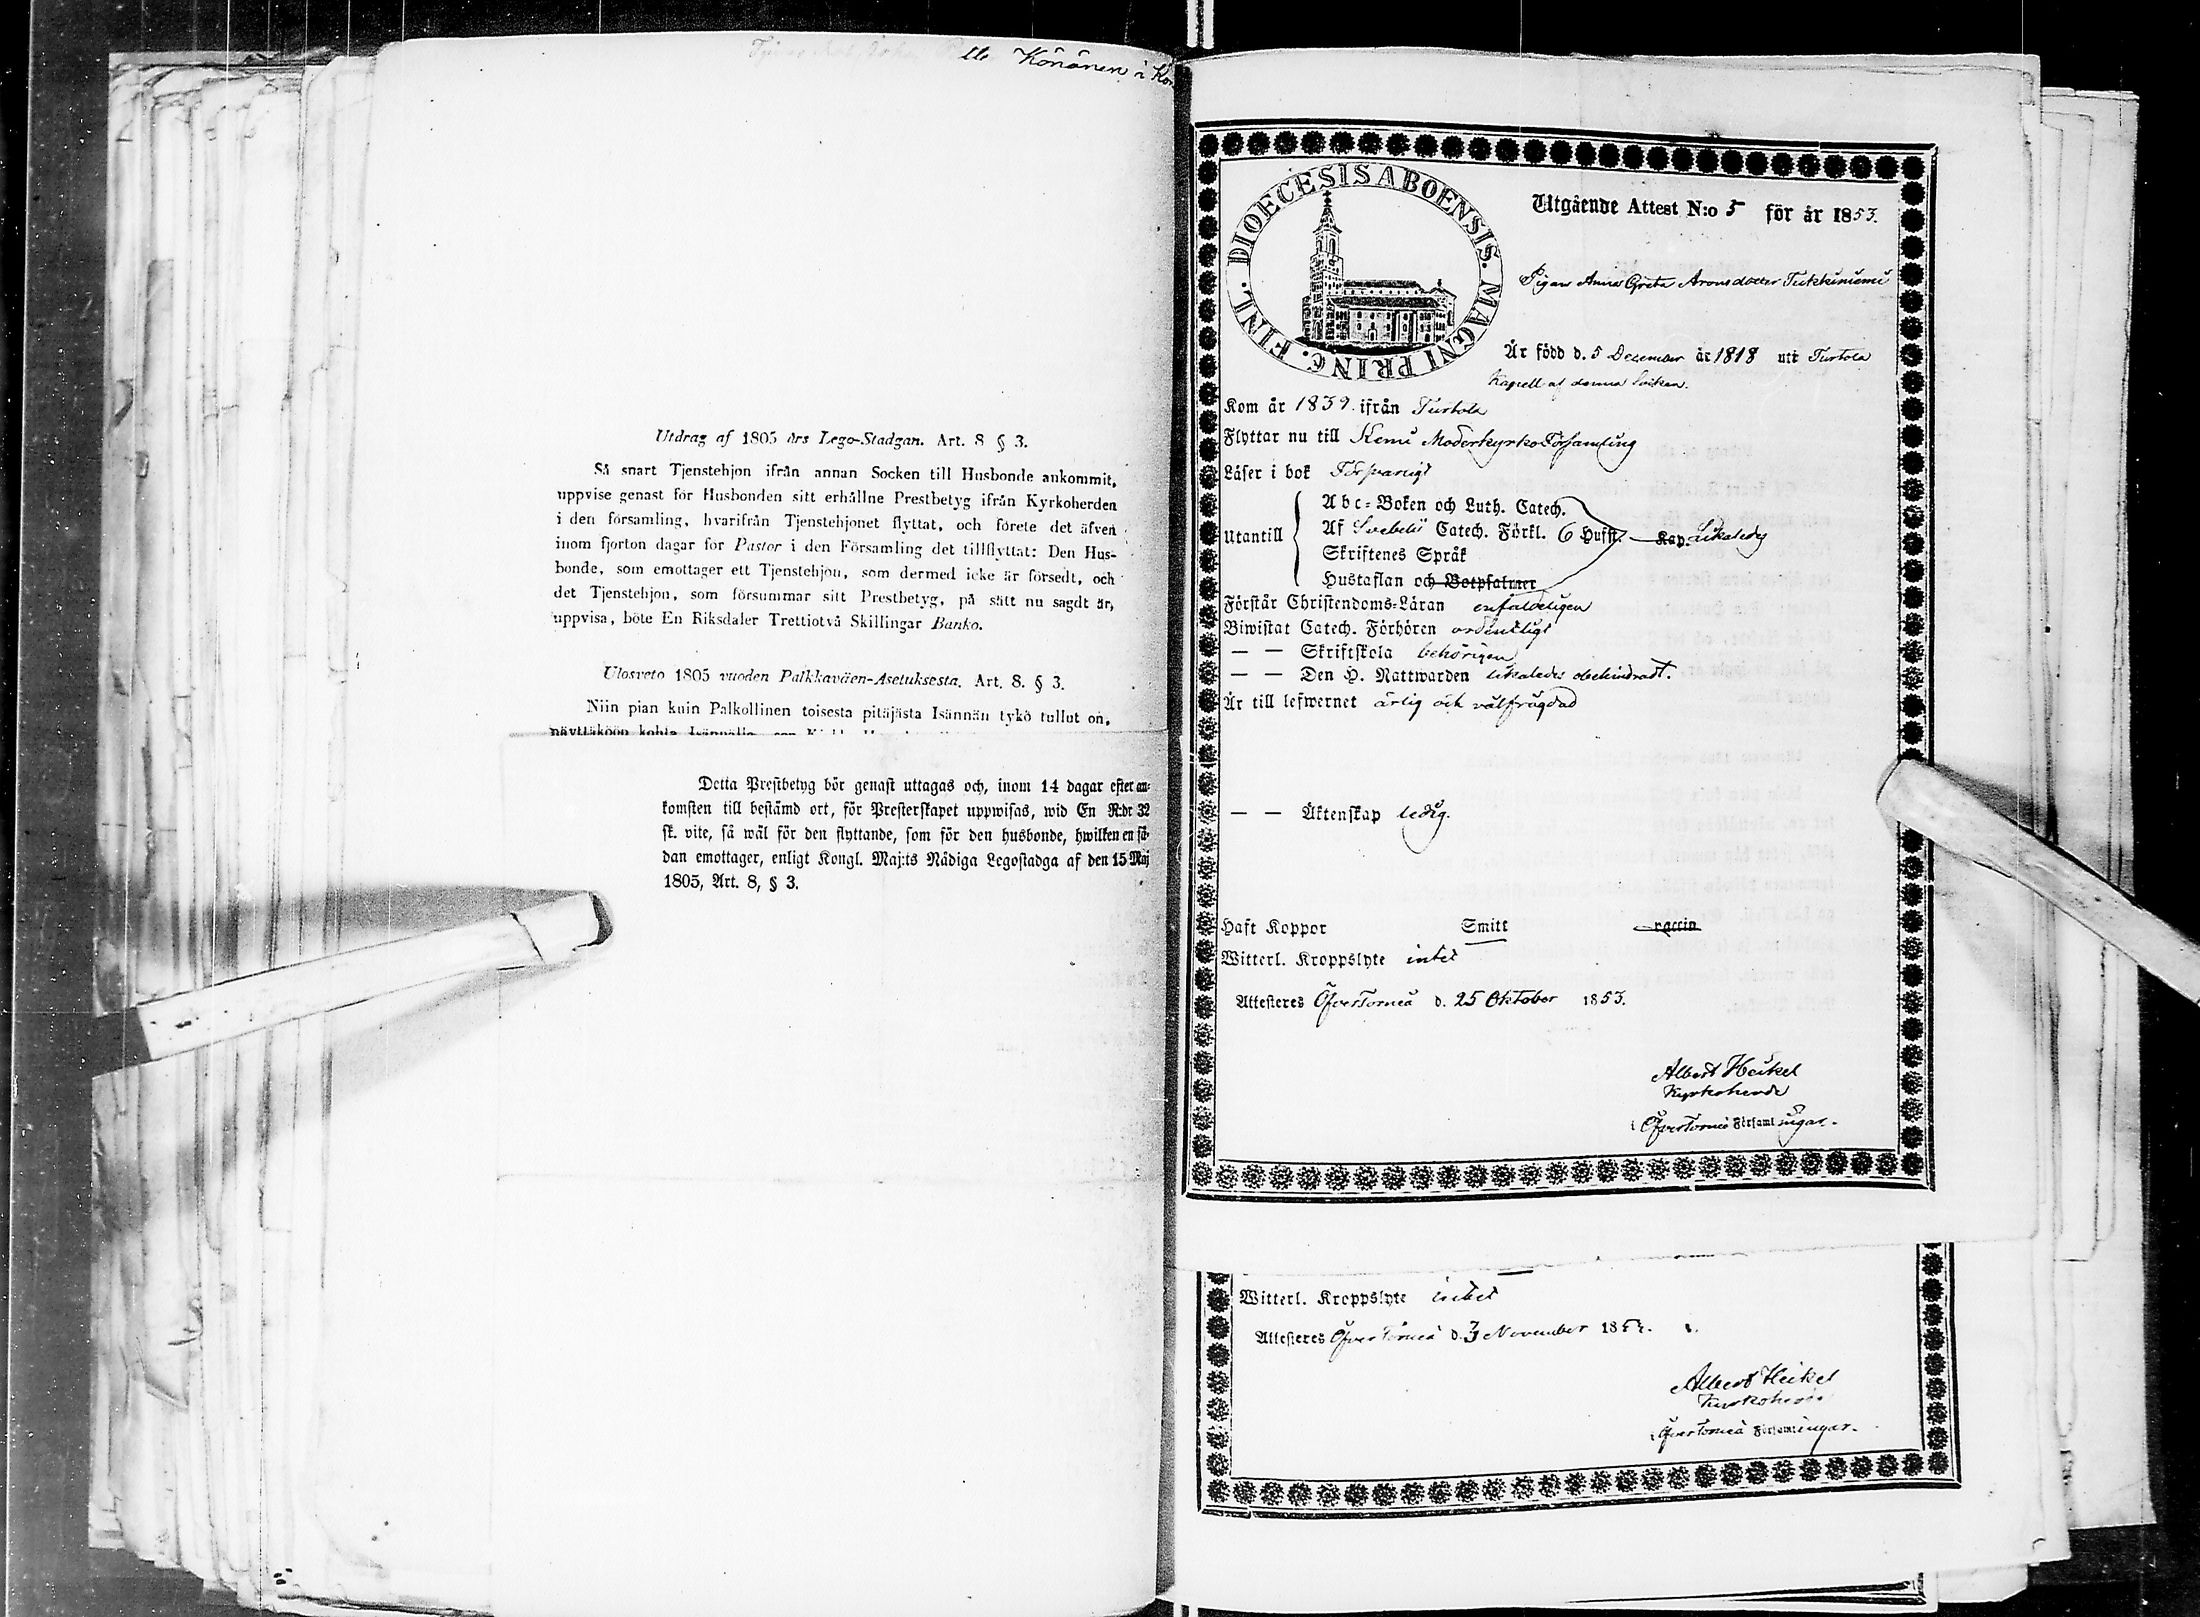 tte Könönen i Kor
Utdrag af 1805 års Lego-Stadgan. Art. 8 § 3.
Så snart Tjenstehjon ifrån annan Socken till Husbonde ankommit,
uppvise genast för Husbonden sitt erhållne Prestbetyg ifrån Kyrkoherden
i den församling, hvarifrån Tjenstehjonet flyttat, och förete det äfven
inom fjorton dagar för Pastor i den Församling det tillflyttat: Den Hus-
bonde, som emottager ett Tjenstehjon, som dermed icke är försedt, och
det Tjenstehjon, som försummar sitt Prestbetyg, på sätt nu sagdt är,
uppvisa, böte En Riksdaler Trettiotvå Skillingar Banko.
Ulosveto 1805 vuoden Palkkaväen-Asetuksesta. Art. 8. § 3.
Niin pian kuin Palkollinen toisesta pitäjästä Isännän tykö tullut on,
Detta Prestbetyg bör genast uttagas och, inom 14 dagar efter an-
komsten till bestämd ort, för Presterskapet uppwisas, wid En R:dr 32
sk. vite, så wäl för den flyttande, som för den husbonde, hwilken en så-
dan emottager, enligt Kongl. Maj:ts Nådiga Legostadga af den 15 Maj
1805, Art. 8, § 3.
DIOECESIS ABOENSIS. MAGNI PRINC. FINL.
Utgående Attest N:o 5 för år 1853.
Pigan Anna Greta Aronsdotter Tukkiniemi
Är född d. 5 December år 1818 uti Turtola
Kapell af denna Socken.
Kom år 1839 ifrån Turtola
Flyttar nu till Kemi Moderkyrko Församling
Läser i bok Försvarligt
Abc-Boken och Luth. Catech.
Utantill Af Svebelii Catech. Förkl. 6 Hufst. Kap. Likaledes
Skriftenes Språk
Hustaflan och Botpsalmer
Förstår Christendoms-Läran enfaldeligen
Biwistat Catech. Förhören ordentligt
— — Skriftskola behörigen
— — Den H. Nattwarden likaledes obehindradt.
Är till lefwernet ärlig och välfrägdad
— — Äktenskap ledig.
Haft Koppor Smitt vaccin
Witterl. Kroppslyte intet
Attesteres ÖfverTorneå d. 25 Oktober 1853.
Albert Heikel
Kyrkoherde
i ÖfverTorneå Församlingar.
Witterl. Kroppslyte intet
Attesteres ÖfverTorneå d. 3 November 1853.
Albert Heikel
Kyrkoherde
i ÖfverTorneå Församlingar.